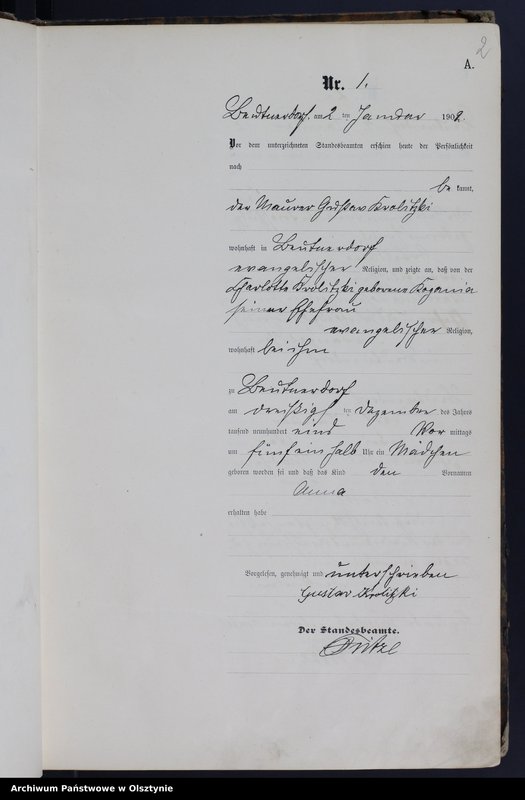 2
A.
Nr. 1.
Beutnerdorf, am 2 ten Januar 1902.
Vor dem unterzeichneten Standesbeamten erschien heute der Persönlichkeit
nach
be kannt,
der Maurer Gustav Krolitzki
wohnhaft in Beutnerdorf
evangelischer Religion, und zeigte an, daß von der
Charlotte Krolitzki geborene Kozania
seiner Ehefrau
evangelischer Religion,
wohnhaft bei ihm
zu Beutnerdorf
am dreißigst ten Dezember des Jahres
tausend neunhundert eins Vor mittags
um fünfeinhalb Uhr ein Mädchen
geboren worden sei und daß das Kind den Vornamen
Anna
erhalten habe
Vorgelesen, genehmigt und unterschrieben
Gustav Krolitzki
Der Standesbeamte.
Archiwum Państwowe w Olsztynie